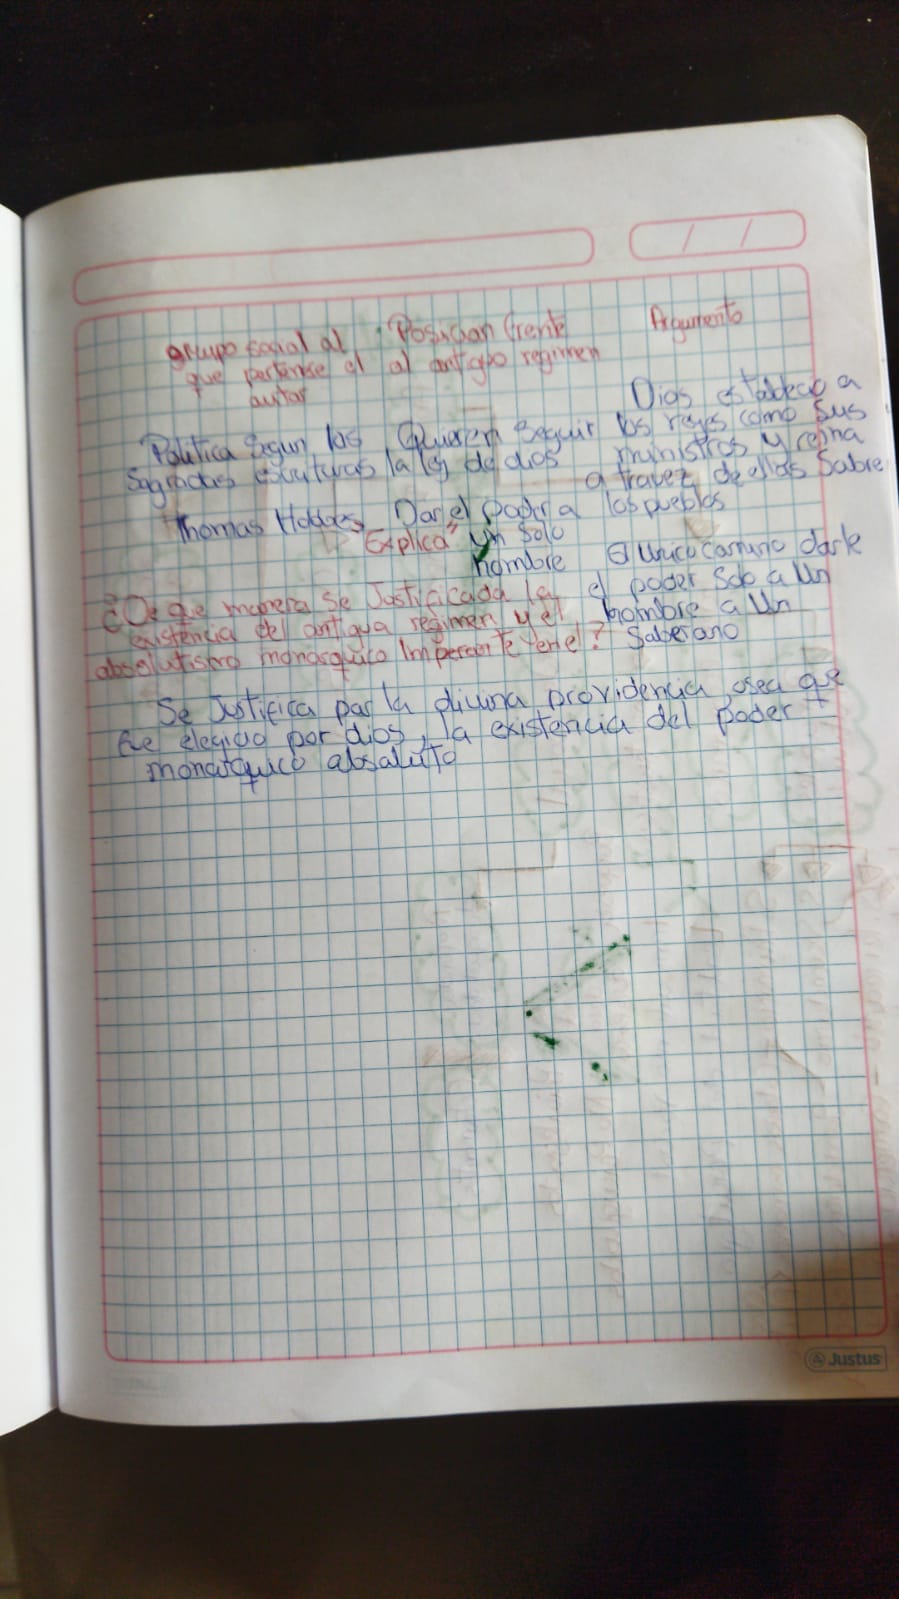 grupo social al
que pertenese el
autor
Posician frente
al antiguo regimen
Argumento
Politica Segun las
Sagradas escrituras
Quieren Seguir
la ley de dios
Dios establecio a
los reyes como Sus
ministros y reina
a travez de ellos Sobre
los pueblos
Thomas Hobbes
Dar el poder a
un Solo
hombre
El unico camino darle
el poder Solo a Un
hombre a Un
Saberano
"Explica"
¿De que manera se Jostificada la
existencia del antigua regimen y el
absolutismo monarquico Imperante
Se Justifica par la divina providencia, osea que
fue elegido por dios, la existencia del poder
monarquico absaluto
Justus